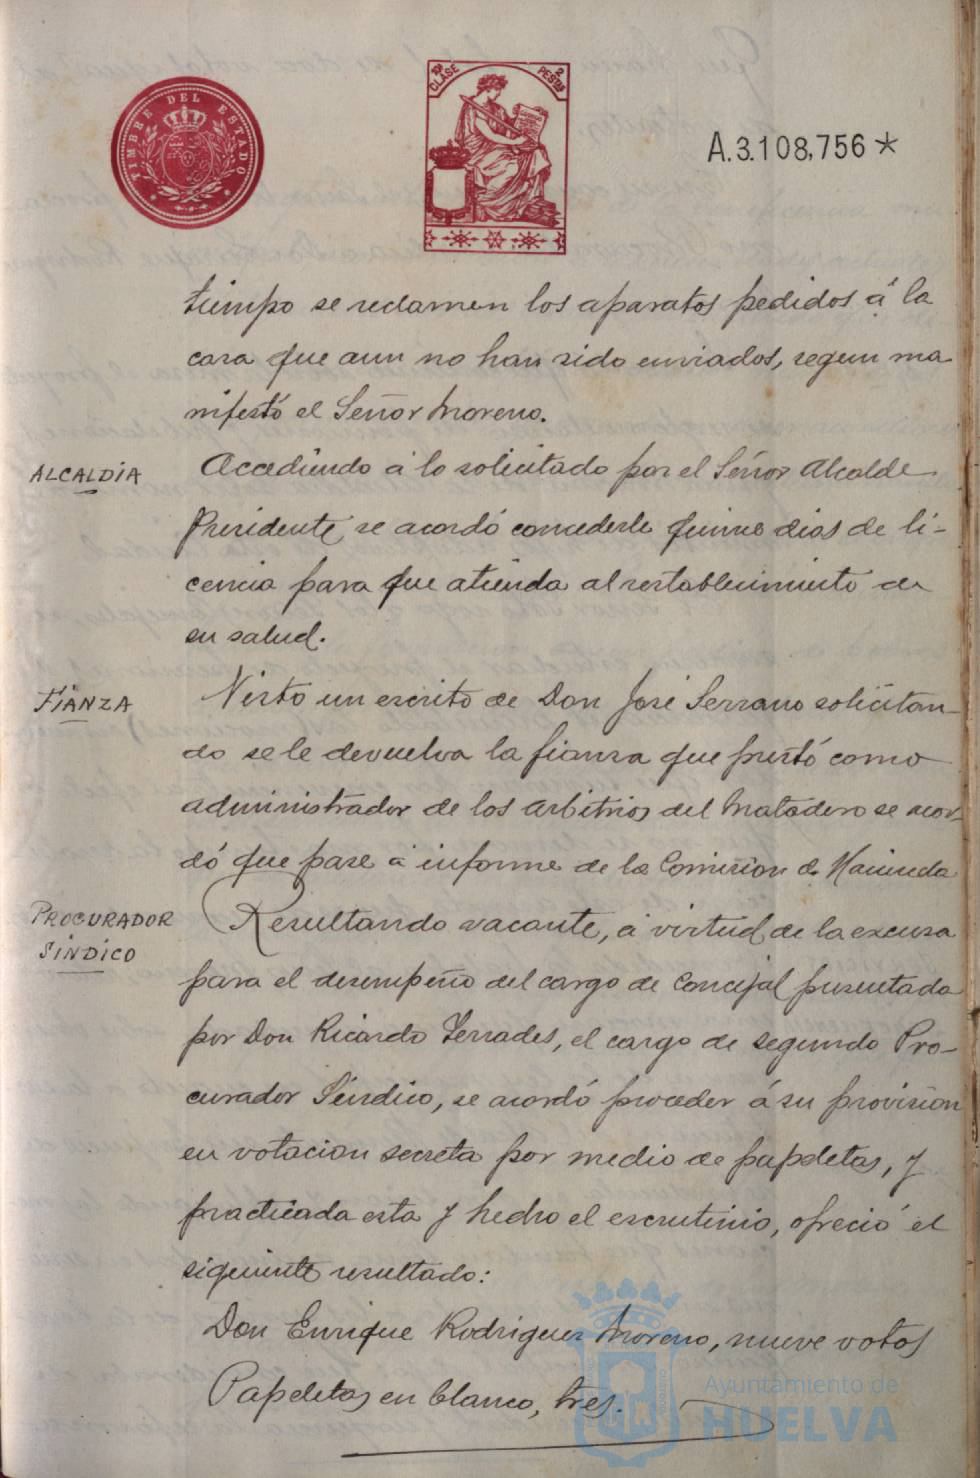 TIMBRE DEL ESTADO
10ª CLASE
2 PESTAS
A.3.108,756*
tiempo se reclamen los aparatos pedidos á la
casa que aun no han sido enviados, segun ma
nifestó el Señor Moreno.
ALCALDIA
Accediendo á lo solicitado por el Señor Alcalde
Presidente, se acordó concederle quince dias de li-
cencia para que atienda al restablecimiento de
su salud.
FIANZA
Visto un escrito de Don José Serrano solicitan-
do se le devuelva la fianza que prestó como
administrador de los arbitrios del Matadero se acor-
dó que pase á informe de la Comision de Hacienda
PROCURADOR
SINDICO
Resultando vacante, á virtud de la excusa
para el desempeño del cargo de Concejal presentada
por Don Ricardo Terrades, el cargo de segundo Pro-
curador Síndico, se acordó proceder á su provision
en votacion secreta por medio de papeletas, y
practicada esta y hecho el escrutinio, ofreció el
siguiente resultado:
Don Enrique Rodriguez Moreno, nueve votos
Papeletas en blanco, tres.
Ayuntamiento de
HUELVA